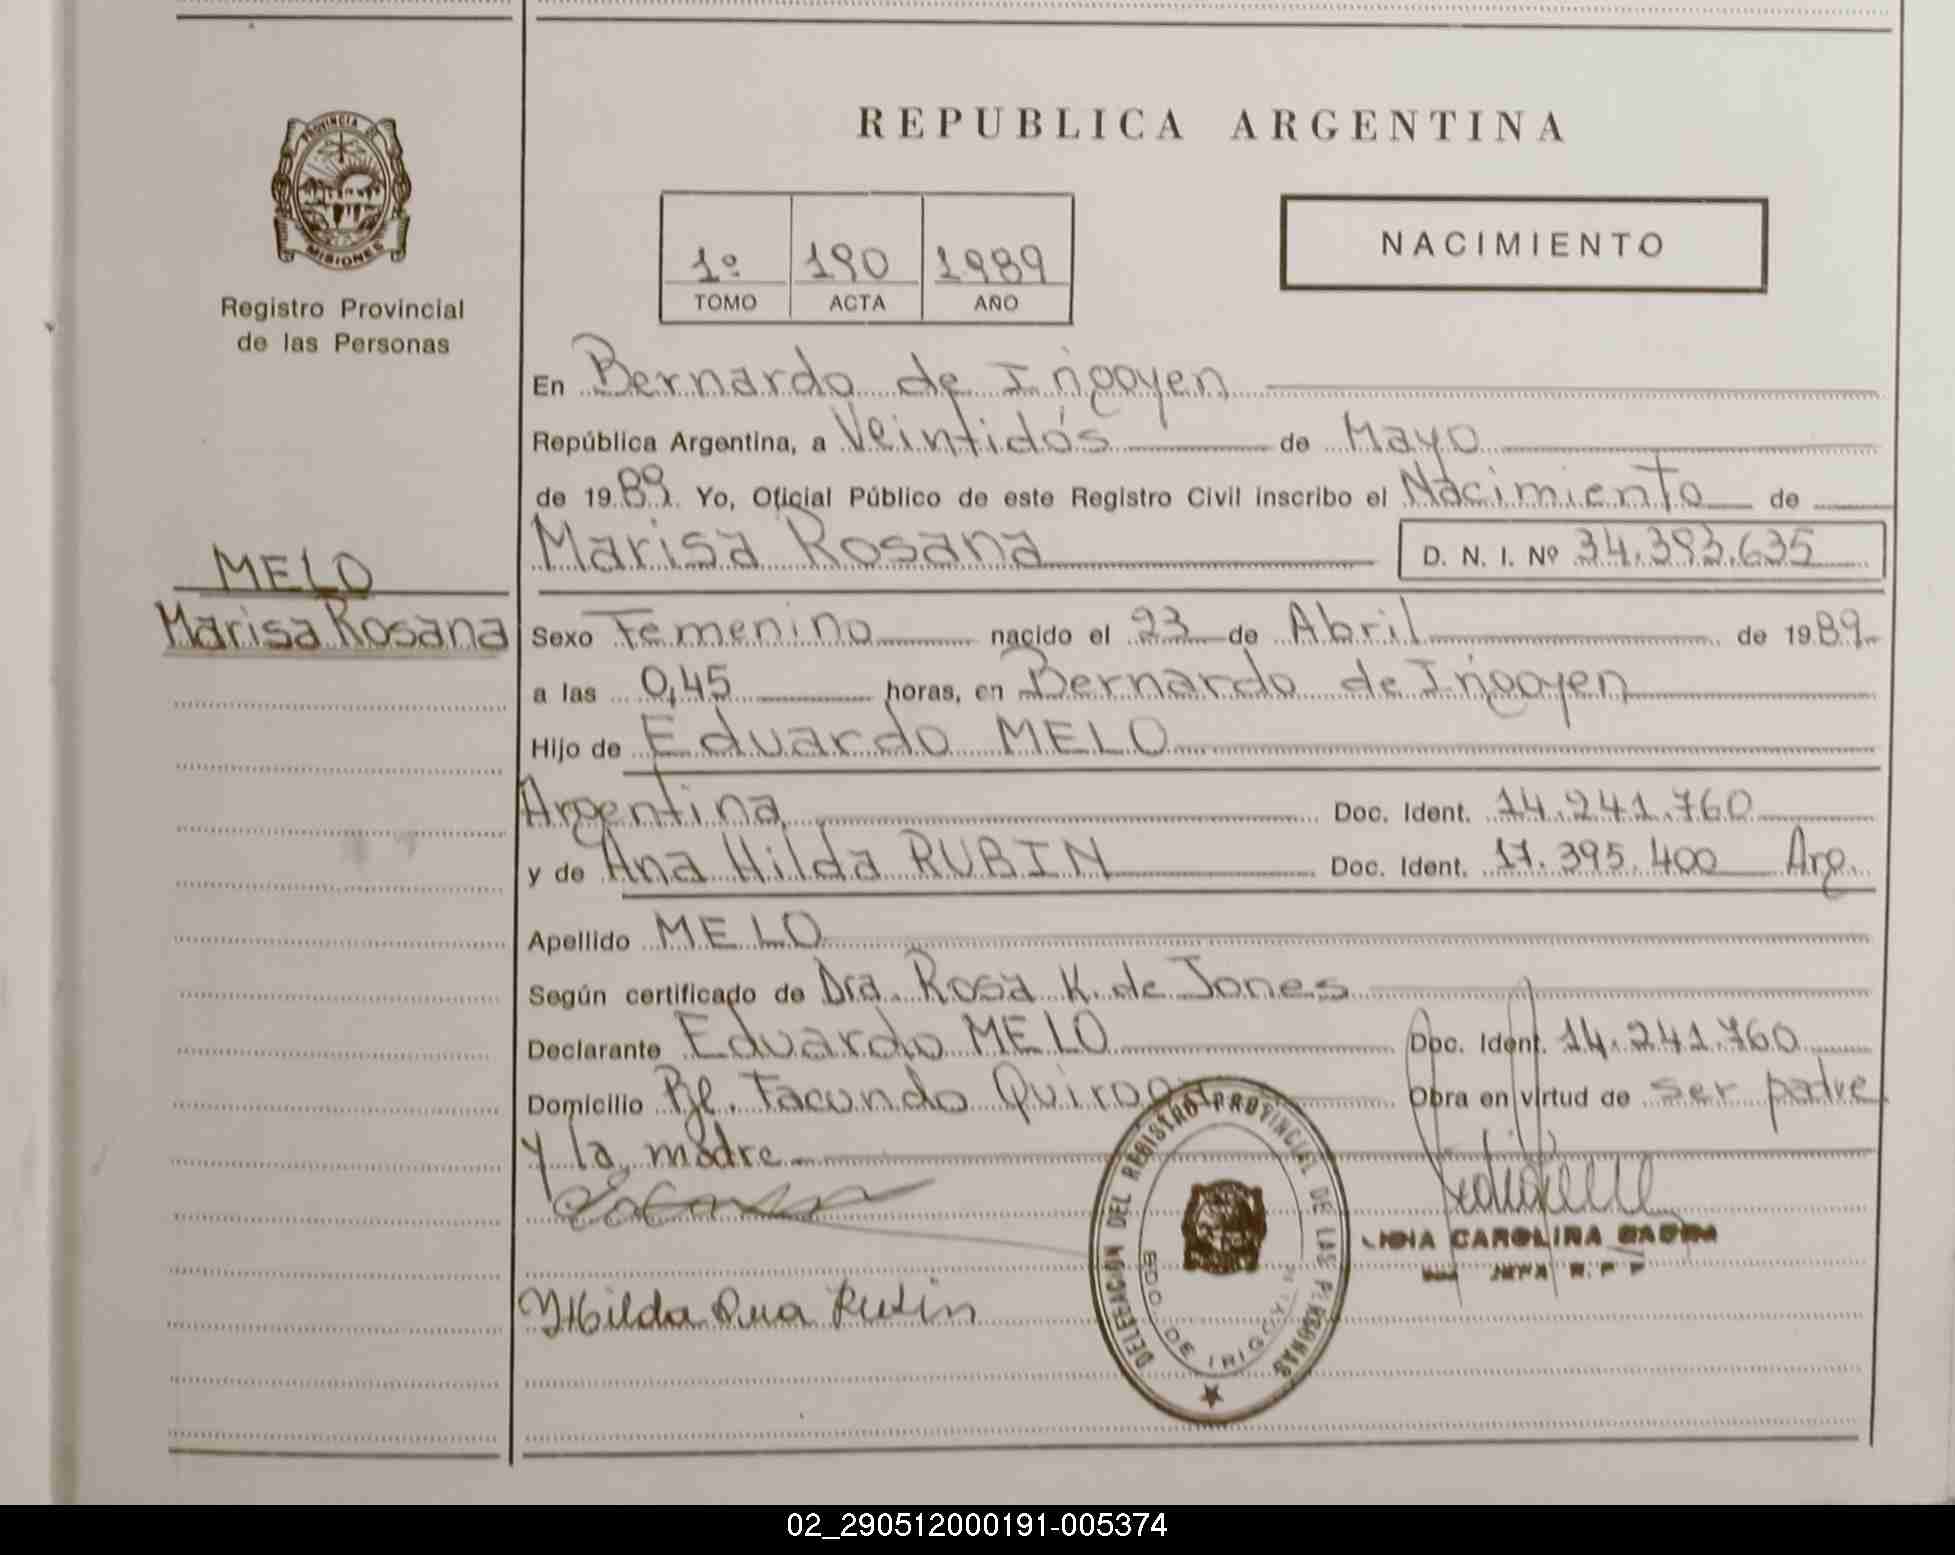 REPUBLICA ARGENTINA
PROVINCIA DE
MISIONES
Registro Provincial
de las Personas
1º 190 1989
TOMO ACTA AÑO
NACIMIENTO
En Bernardo de Irigoyen
República Argentina, a Veintidós de Mayo
de 1989. Yo, Oficial Público de este Registro Civil inscribo el Nacimiento de
Marisa Rosana D. N. I. Nº 34.393.635
MELO
Marisa Rosana
Sexo Femenino nacido el 23 de Abril de 1989
a las 0,45 horas, en Bernardo de Irigoyen
Hijo de Eduardo MELO
Argentina Doc. Ident. 14.241.760
y de Ana Hilda RUBIN Doc. Ident. 17.395.400 Arg.
Apellido MELO
Según certificado de Dra. Rosa K. de Jones
Declarante Eduardo MELO Doc. Ident. 14.241.760
Domicilio Bº. Facundo Quiroga Obra en virtud de ser padre
y la madre
DELEGACION DEL REGISTRO PROVINCIAL DE LAS PERSONAS
BDO. DE IRIGOYEN
CAROLINA
JEFA R. P. P.
Hilda Ana Rubin
02_290512000191-005374